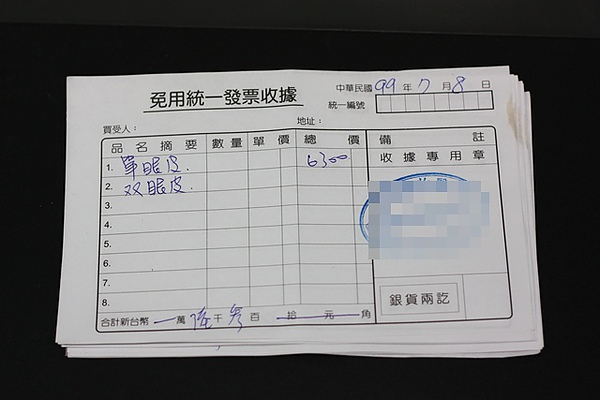 免用統一發票收據
中華民國 99 年 7 月 8 日
統一編號
買受人： 地址：
品名摘要 數量 單價 總價 備註
1. 單眼皮. 6300 收據專用章
2. 双眼皮.
3.
4.
5.
6.
7.
8. 銀貨兩訖
合計新台幣 一 萬 陸 千 參 百 拾 元 角